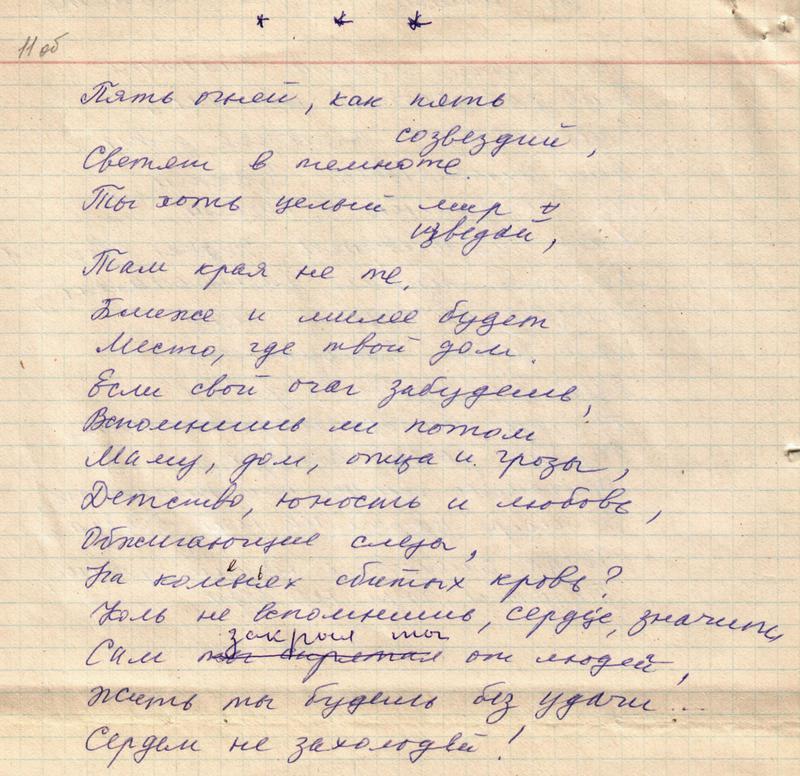 * * *
11 об
Пять огней, как пять
созвездий,
Светят в темноте.
Ты хоть целый мир
изведай,
Там края не те.
Ближе и милее будет
Место, где твой дом.
Если свой очаг забудешь,
Вспомнишь ли потом
Маму, дом, отца и грозы,
Детство, юность и любовь,
Обжигающие слёзы,
На коленях сбитых кровь?
Коль не вспомнишь, сердце, значит,
закрыл ты
Сам ты спрятал от людей,
Жить ты будешь без удачи...
Сердцем не захолодей!